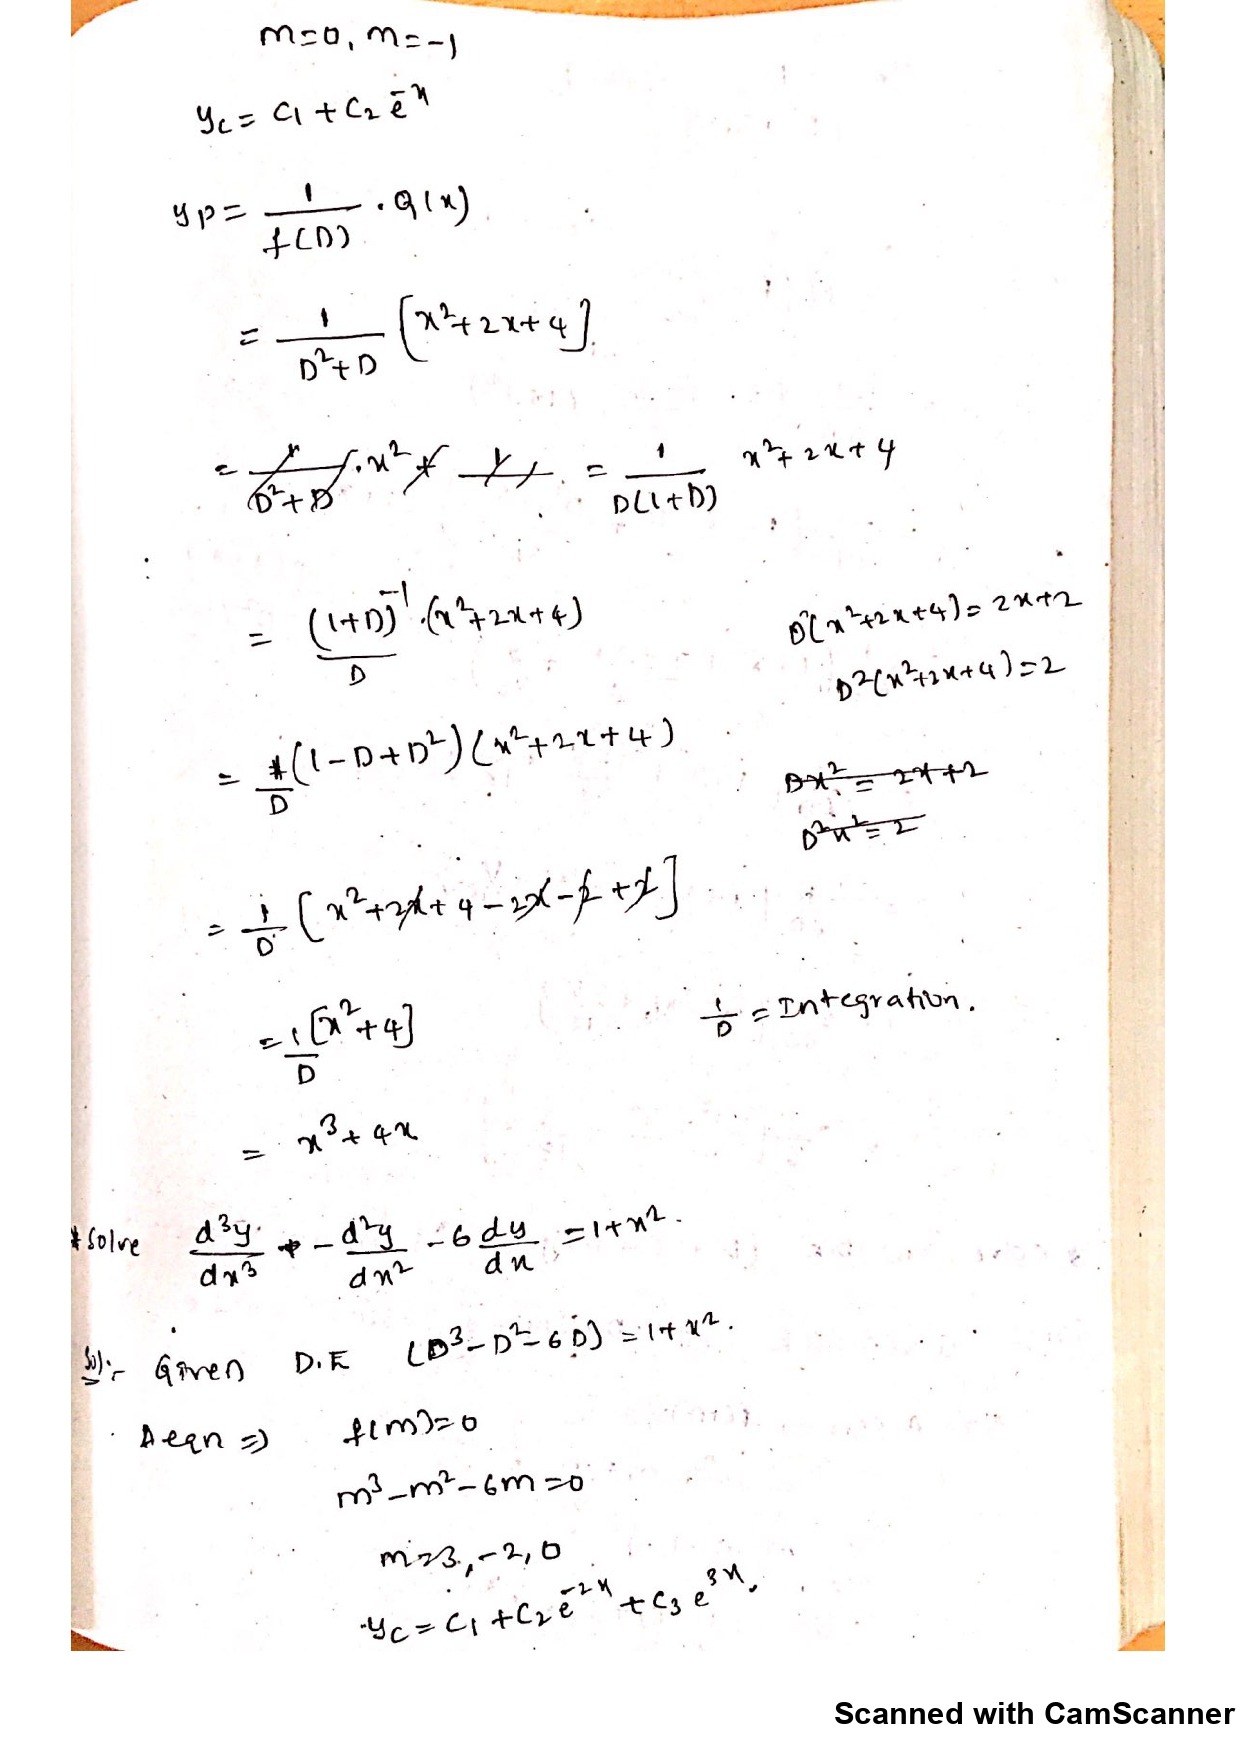 m=0, m=-1
yc = C1 + C2 e^-x
yp = 1/f(D) . Q(x)
= 1/(D²+D) [x²+2x+4]
= 1/(D²+D) . x² + 1/ = 1/D(1+D) x²+2x+4
= (1+D)^-1/D . (x²+2x+4)
D(x²+2x+4) = 2x+2
D²(x²+2x+4) = 2
= 1/D (1-D+D²) (x²+2x+4)
Dx² = 2x+2
D²x² = 2
= 1/D [x²+2x+4-2x-2+2]
= 1/D [x²+4]
1/D = Integration.
= x³+4x
* Solve d³y/dx³ - d²y/dx² - 6 dy/dx = 1+x².
Sol:- Given D.E (D³-D²-6D) = 1+x².
A eqn => f(m)=0
m³-m²-6m=0
m=3,-2,0
yc = C1 + C2 e^-2x + C3 e^3x.
Scanned with CamScanner